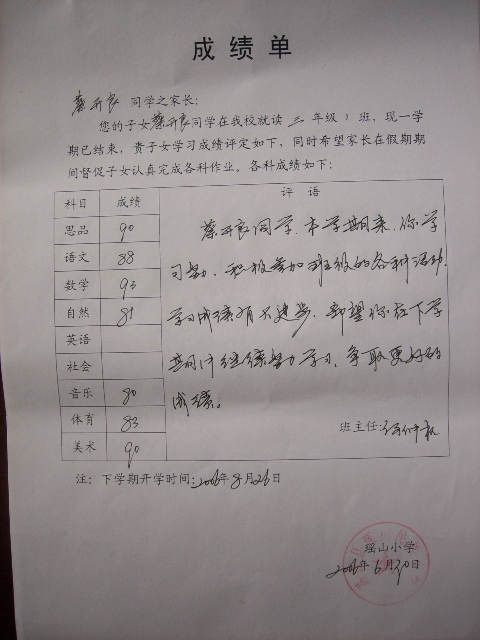 成绩单
蔡开良 同学之家长：
您的子女蔡开良同学在我校就读 三 年级 1 班，现一学
期已结束，贵子女学习成绩评定如下，同时希望家长在假期期
间督促子女认真完成各科作业。各科成绩如下：
科目 成绩 评语
思品 90
语文 88
数学 93
自然 81
英语
社会
音乐 80
体育 83
美术 90
蔡开良同学，本学期来，你学
习勤，积极参加班级的各种活动，
学习成绩有大进步，希望你在下学
期里继续努力学习，争取更好的
成绩。
班主任：
注：下学期开学时间：2006年8月26日
瑶山小学
2006年6月30日